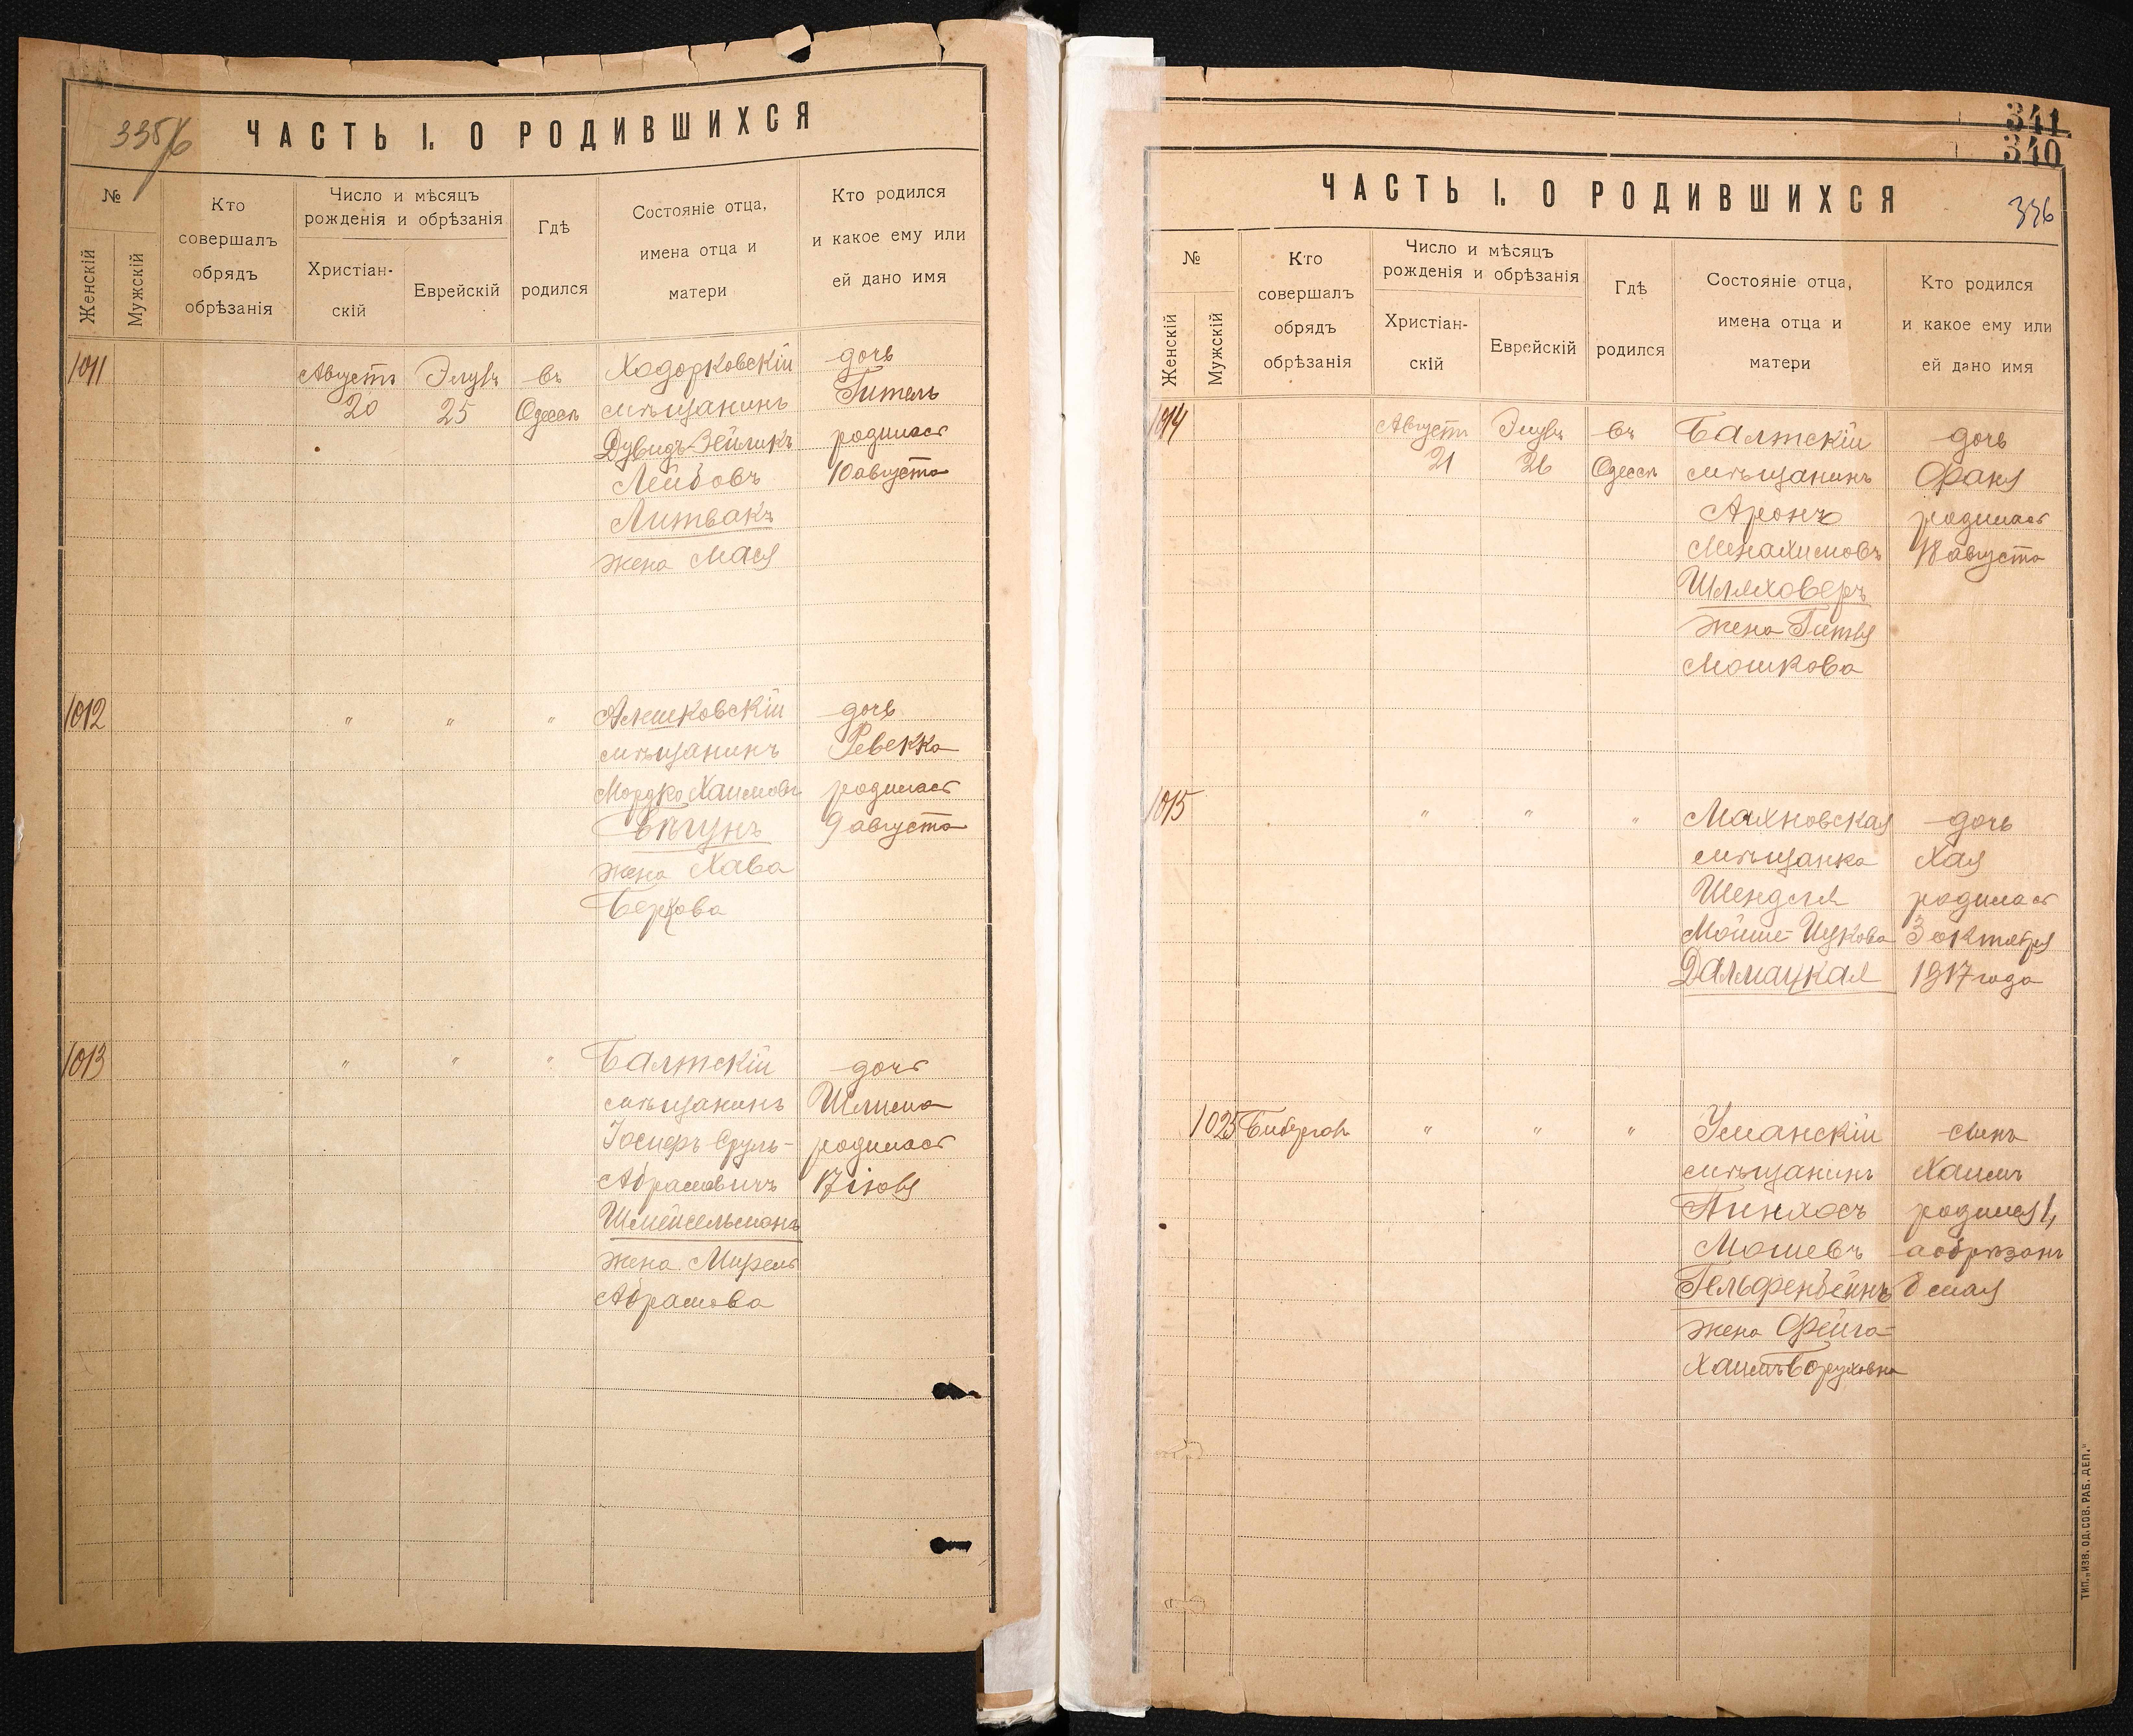 335/6
ЧАСТЬ I. О РОДИВШИХСЯ
№
Женскій
Мужскій
Кто
совершалъ
обрядъ
обрѣзанія
Число и мѣсяцъ
рожденія и обрѣзанія
Христіан-
скій
Еврейскій
Гдѣ
родился
Состояніе отца,
имена отца и
матери
Кто родился
и какое ему или
ей дано имя
1011
Августъ
20
Элулъ
25
въ
Одессѣ
Ходорковскій
мѣщанинъ
Дувидъ-Зейликъ
Лейбовъ
Литвакъ
жена Мася
дочь
Гитель
родилась
10 августа
1012
" " "
Алешковскій
мѣщанинъ
Мордко Хаимовъ
Бѣгунъ
жена Хава
Беркова
дочь
Ревекка
родилась
9 августа
1013
" " "
Балтскій
мѣщанинъ
Іосифъ-Сруль-
Абрамовичъ
Шмейсельманъ
жена Мирель
Абрамова
дочь
Шлима
родилась
17 іюля
341
340
336
ЧАСТЬ I. О РОДИВШИХСЯ
№
Женскій
Мужскій
Кто
совершалъ
обрядъ
обрѣзанія
Число и мѣсяцъ
рожденія и обрѣзанія
Христіан-
скій
Еврейскій
Гдѣ
родился
Состояніе отца,
имена отца и
матери
Кто родился
и какое ему или
ей дано имя
1014
Августъ
21
Элулъ
26
въ
Одессѣ
Балтскій
мѣщанинъ
Аронъ
Менахимовъ
Шляховеръ
жена Гитля
Мошкова
дочь
Фаня
родилась
18 августа
1015
" " "
Махновская
мѣщанка
Шендля
Мойше-Ицкова
Далмацкая
дочь
Хая
родилась
3 октября
1917 года
1025
" " "
Уманскій
мѣщанинъ
Пинхосъ
Мошевъ
Гельфенбейнъ
жена Фейга-
Хаимъ Боруховна
сынъ
Хаимъ
родился 1,
а обрѣзанъ
8 мая
ТИП. „ИЗВ. ОД. СОВ. РАБ. ДЕП."